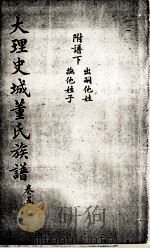 大理史城董氏族譜 卷五
附譜下
出嗣他姓
撫他姓子